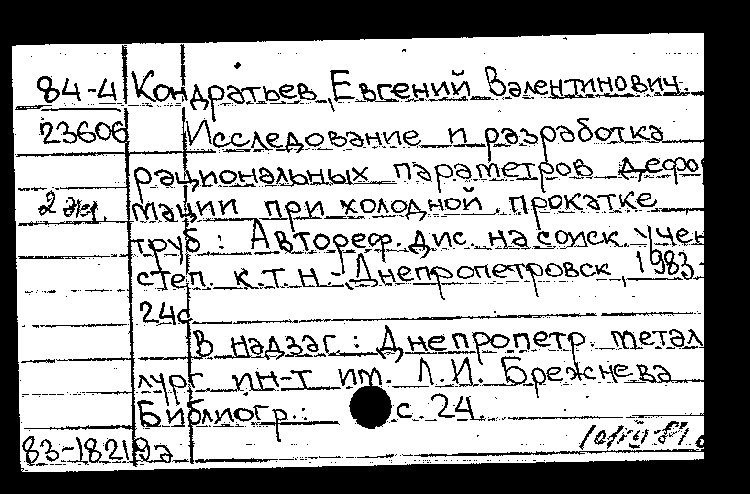 84-4 Кондратьев, Евгений Валентинович.
23606 Исследование и разработка
рациональных параметров дефор
2 экз. мации при холодной прокатке
труб : Автореф. дис. на соиск. учен
степ. к.т.н. - Днепропетровск, 1983.-
24с.
В надзаг. : Днепропетр. метал
лург. ин-т им. Л.И. Брежнева
Библиогр.: с. 24.
83-18219а